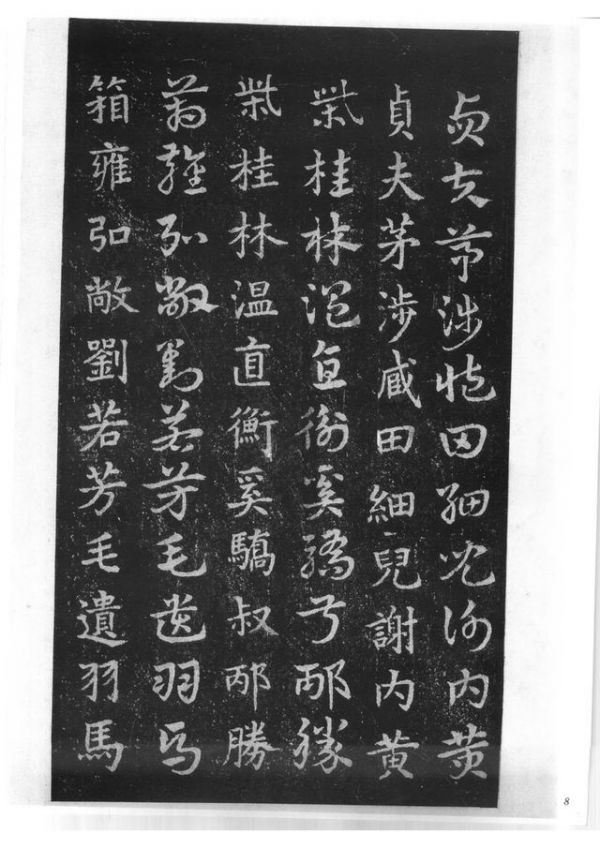 貞夫茅涉臧田細兒謝內黃
貞夫茅涉臧田細兒謝內黃
柴桂林温直衡奚驕叔邴勝
柴桂林温直衡奚驕叔邴勝
箱雍弘敞劉若芳毛遺羽馬
箱雍弘敞劉若芳毛遺羽馬
8